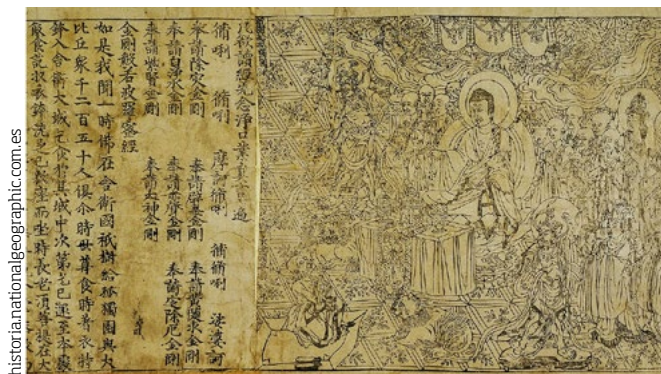 凡欲讀經先念淨口業真言一遍
脩唎 脩唎 摩訶脩唎 脩脩唎 娑婆訶
奉請除災金剛 奉請辟毒金剛 奉請黃隨求金剛
奉請白淨水金剛 奉請赤聲金剛 奉請定除厄金剛
奉請紫賢金剛 奉請大神金剛
金剛般若波羅蜜經
如是我聞一時佛在舍衛國祇樹給孤獨園與大
比丘衆千二百五十人俱尒時世尊食時著衣持
鉢入舍衛大城乞食於其城中次第乞已還至本處
飯食訖收衣鉢洗足已敷座而坐時長老須菩提在大
historia.nationalgeographic.com.es